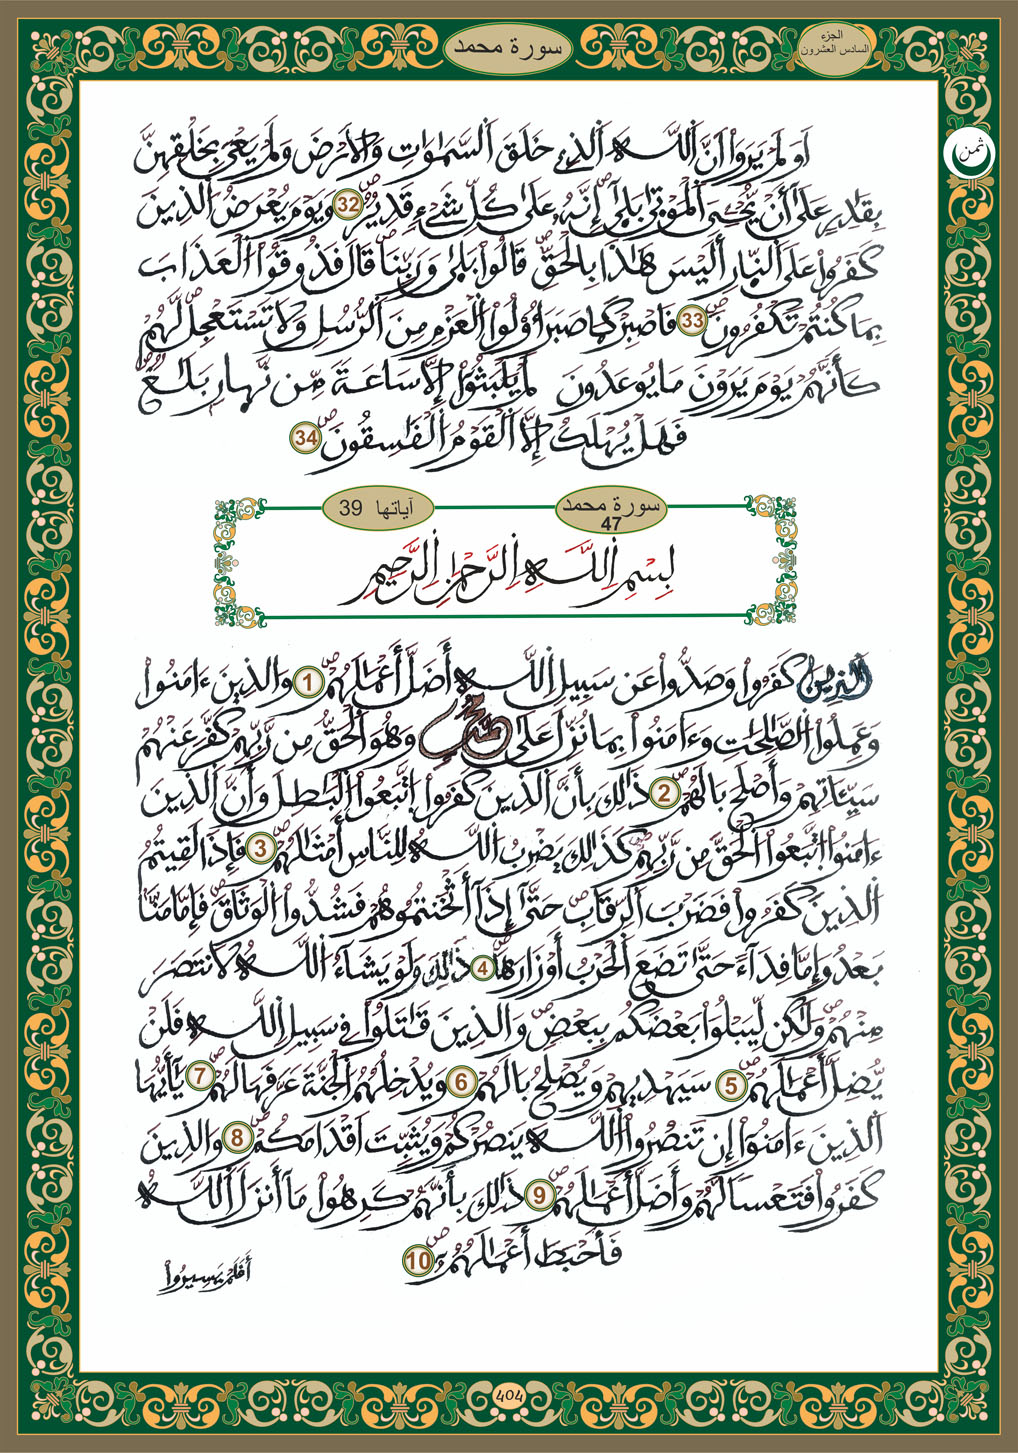 سورة محمد
الجزء
السادس العشرون
ثمن
اَوَلَمْ يَرَوَاْ اَنَّ اَللَّهَ اَلذِے خَلَقَ اَلسَّمَٰوَٰتِ وَالَارْضَ وَلَمْ يَعْيَ بِخَلْقِهِنَّ
بِقَٰدِرٍ عَلَىٰٓ أَنْ يُّحْيِيَ اَلْمَوْتَىٰ بَلَىٰٓ إِنَّهُۥ عَلَىٰ كُلِّ شَےْءٖ قَدِيرٞ 32 وَيَوْمَ يُعْرَضُ اُلذِينَ
كَفَرُواْ عَلَى اَلنّ۪ارِ أَلَيْسَ هَٰذَا بِالْحَقِّ قَالُواْ بَلَىٰ وَرَبِّنَا قَالَ فَذُوقُواْ اُلْعَذَابَ
بِمَا كُنتُمْ تَكْفُرُونَ 33 فَاصْبِرْ كَمَا صَبَرَ أُوْلُواْ اُلْعَزْمِ مِنَ اَلرُّسُلِ وَلَا تَسْتَعْجِل لَّهُمْ
كَأَنَّهُمْ يَوْمَ يَرَوْنَ مَا يُوعَدُونَ لَمْ يَلْبَثُوٓاْ إِلَّا سَاعَةٗ مِّن نَّه۪ارٖ بَلَٰغٞ
فَهَلْ يُهْلَكُ إِلَّا اَلْقَوْمُ اُلْفَٰسِقُونَ 34
سورة محمد
47
آياتها 39
بِسْمِ اِللَّهِ اِلرَّحْمَٰنِ اِلرَّحِيمِ
اَلذِينَ كَفَرُواْ وَصَدُّواْ عَن سَبِيلِ اِللَّهِ أَضَلَّ أَعْمَٰلَهُمْ 1 وَالذِينَ ءَامَنُواْ
وَعَمِلُواْ اُلصَّٰلِحَٰتِ وَءَامَنُواْ بِمَا نُزِّلَ عَلَىٰ مُحَمَّدٖ وَهُوَ اَلْحَقُّ مِن رَّبِّهِمْ كَفَّرَ عَنْهُمْ
سَيِّـَٔاتِهِمْ وَأَصْلَحَ بَالَهُمْ 2 ذَٰلِكَ بِأَنَّ اَلذِينَ كَفَرُواْ اُتَّبَعُواْ اُلْبَٰطِلَ وَأَنَّ اَلذِينَ
ءَامَنُواْ اُتَّبَعُواْ اُلْحَقَّ مِن رَّبِّهِمْ كَذَٰلِكَ يَضْرِبُ اُللَّهُ لِلنَّاسِ أَمْثَٰلَهُمْ 3 فَإِذَا لَقِيتُمُ
اُلذِينَ كَفَرُواْ فَضَرْبَ اَلرِّقَابِ حَتَّىٰٓ إِذَآ أَثْخَنتُمُوهُمْ فَشُدُّواْ اُلْوَثَاقَ فَإِمَّا مَنَّاۢ
بَعْدُ وَإِمَّا فِدَآءً حَتَّىٰ تَضَعَ اَلْحَرْبُ أَوْزَارَهَا 4 ذَٰلِكَ وَلَوْ يَشَآءُ اُللَّهُ لَانتَصَرَ
مِنْهُمْ وَلَٰكِن لِّيَبْلُوَاْ بَعْضَكُم بِبَعْضٖ وَالذِينَ قَٰتَلُواْ فِے سَبِيلِ اِللَّهِ فَلَنْ
يُّضِلَّ أَعْمَٰلَهُمْ 5 سَيَهْدِيهِمْ وَيُصْلِحُ بَالَهُمْ 6 وَيُدْخِلُهُمُ اُلْجَنَّةَ عَرَّفَهَا لَهُمْ 7 يَٰٓأَيُّهَا
اَلذِينَ ءَامَنُوٓاْ إِن تَنصُرُواْ اُللَّهَ يَنصُرْكُمْ وَيُثَبِّتَ اَقْدَامَكُمْ 8 وَالذِينَ
كَفَرُواْ فَتَعْسٗا لَّهُمْ وَأَضَلَّ أَعْمَٰلَهُمْ 9 ذَٰلِكَ بِأَنَّهُمْ كَرِهُواْ مَآ أَنزَلَ اَللَّهُ
فَأَحْبَطَ أَعْمَٰلَهُمْ 10
أَفَلَمْ يَسِيرُواْ
404